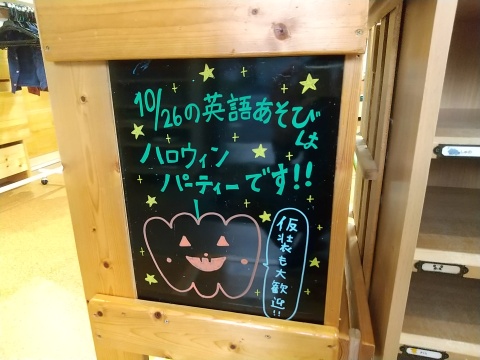 10/26の英語あそびは
ハロウィン
パーティーです!!
仮装も大歓迎!!